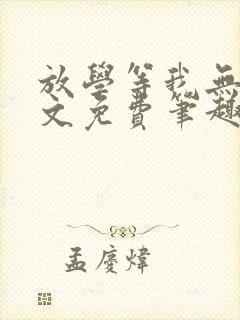 放學等我無
文免費筆趣
孟慶煒